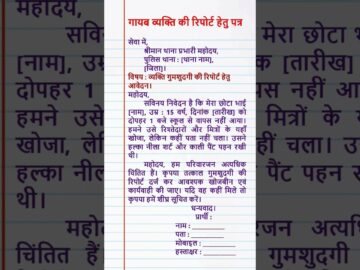 गायब व्यक्ति की रिपोर्ट हेतु पत्र
सेवा में,
श्रीमान थाना प्रभारी महोदय,
पुलिस थाना : (थाना नाम),
(जिला)।
विषय : व्यक्ति गुमशुदगी की रिपोर्ट हेतु
आवेदन।
महोदय,
सविनय निवेदन है कि मेरा छोटा भाई
[नाम], उम्र : 15 वर्ष, दिनांक [तारीख] को
दोपहर 1 बजे स्कूल से वापस नहीं आया।
हमने उसे रिश्तेदारों और मित्रों के यहाँ
खोजा, लेकिन कहीं पता नहीं चला। उसने
हल्का नीला शर्ट और काली पैंट पहन रखी
थी।
महोदय, हम परिवारजन अत्यधिक
चिंतित हैं। कृपया तत्काल गुमशुदगी की
रिपोर्ट दर्ज कर आवश्यक खोजबीन एवं
कार्यवाही की जाए। यदि वह कहीं मिले तो
कृपया हमें शीघ्र सूचित करें।
धन्यवाद।
प्रार्थी :
नाम : ________
पता : ________
मोबाइल : ________
हस्ताक्षर : ________